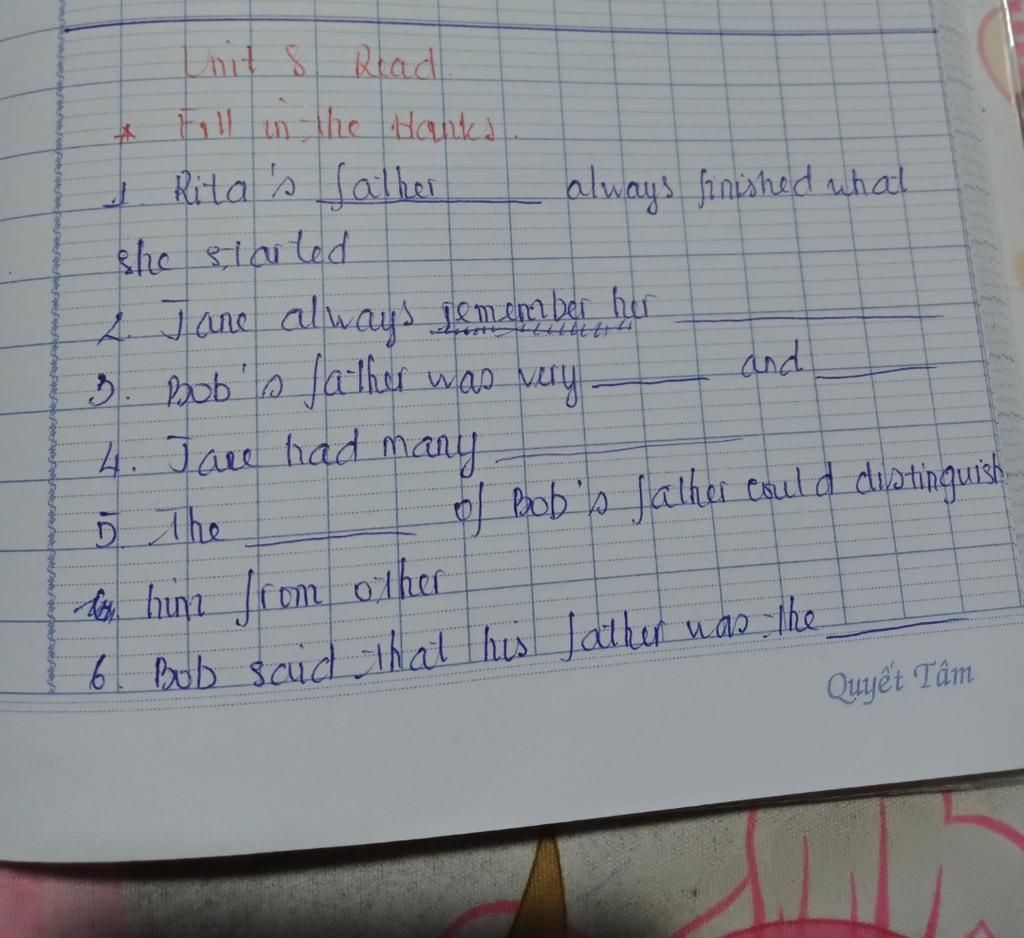 Unit 8 Read.
* Fill in the blanks.
1. Rita's father ______ always finished what
she started
2. Jane always remember her ______
3. Bob's father was very ______ and ______
4. Jane had many ______
5 The ______ of Bob's father could distinguish
him from other
6. Bob said that his father was the ______
Quyết Tâm